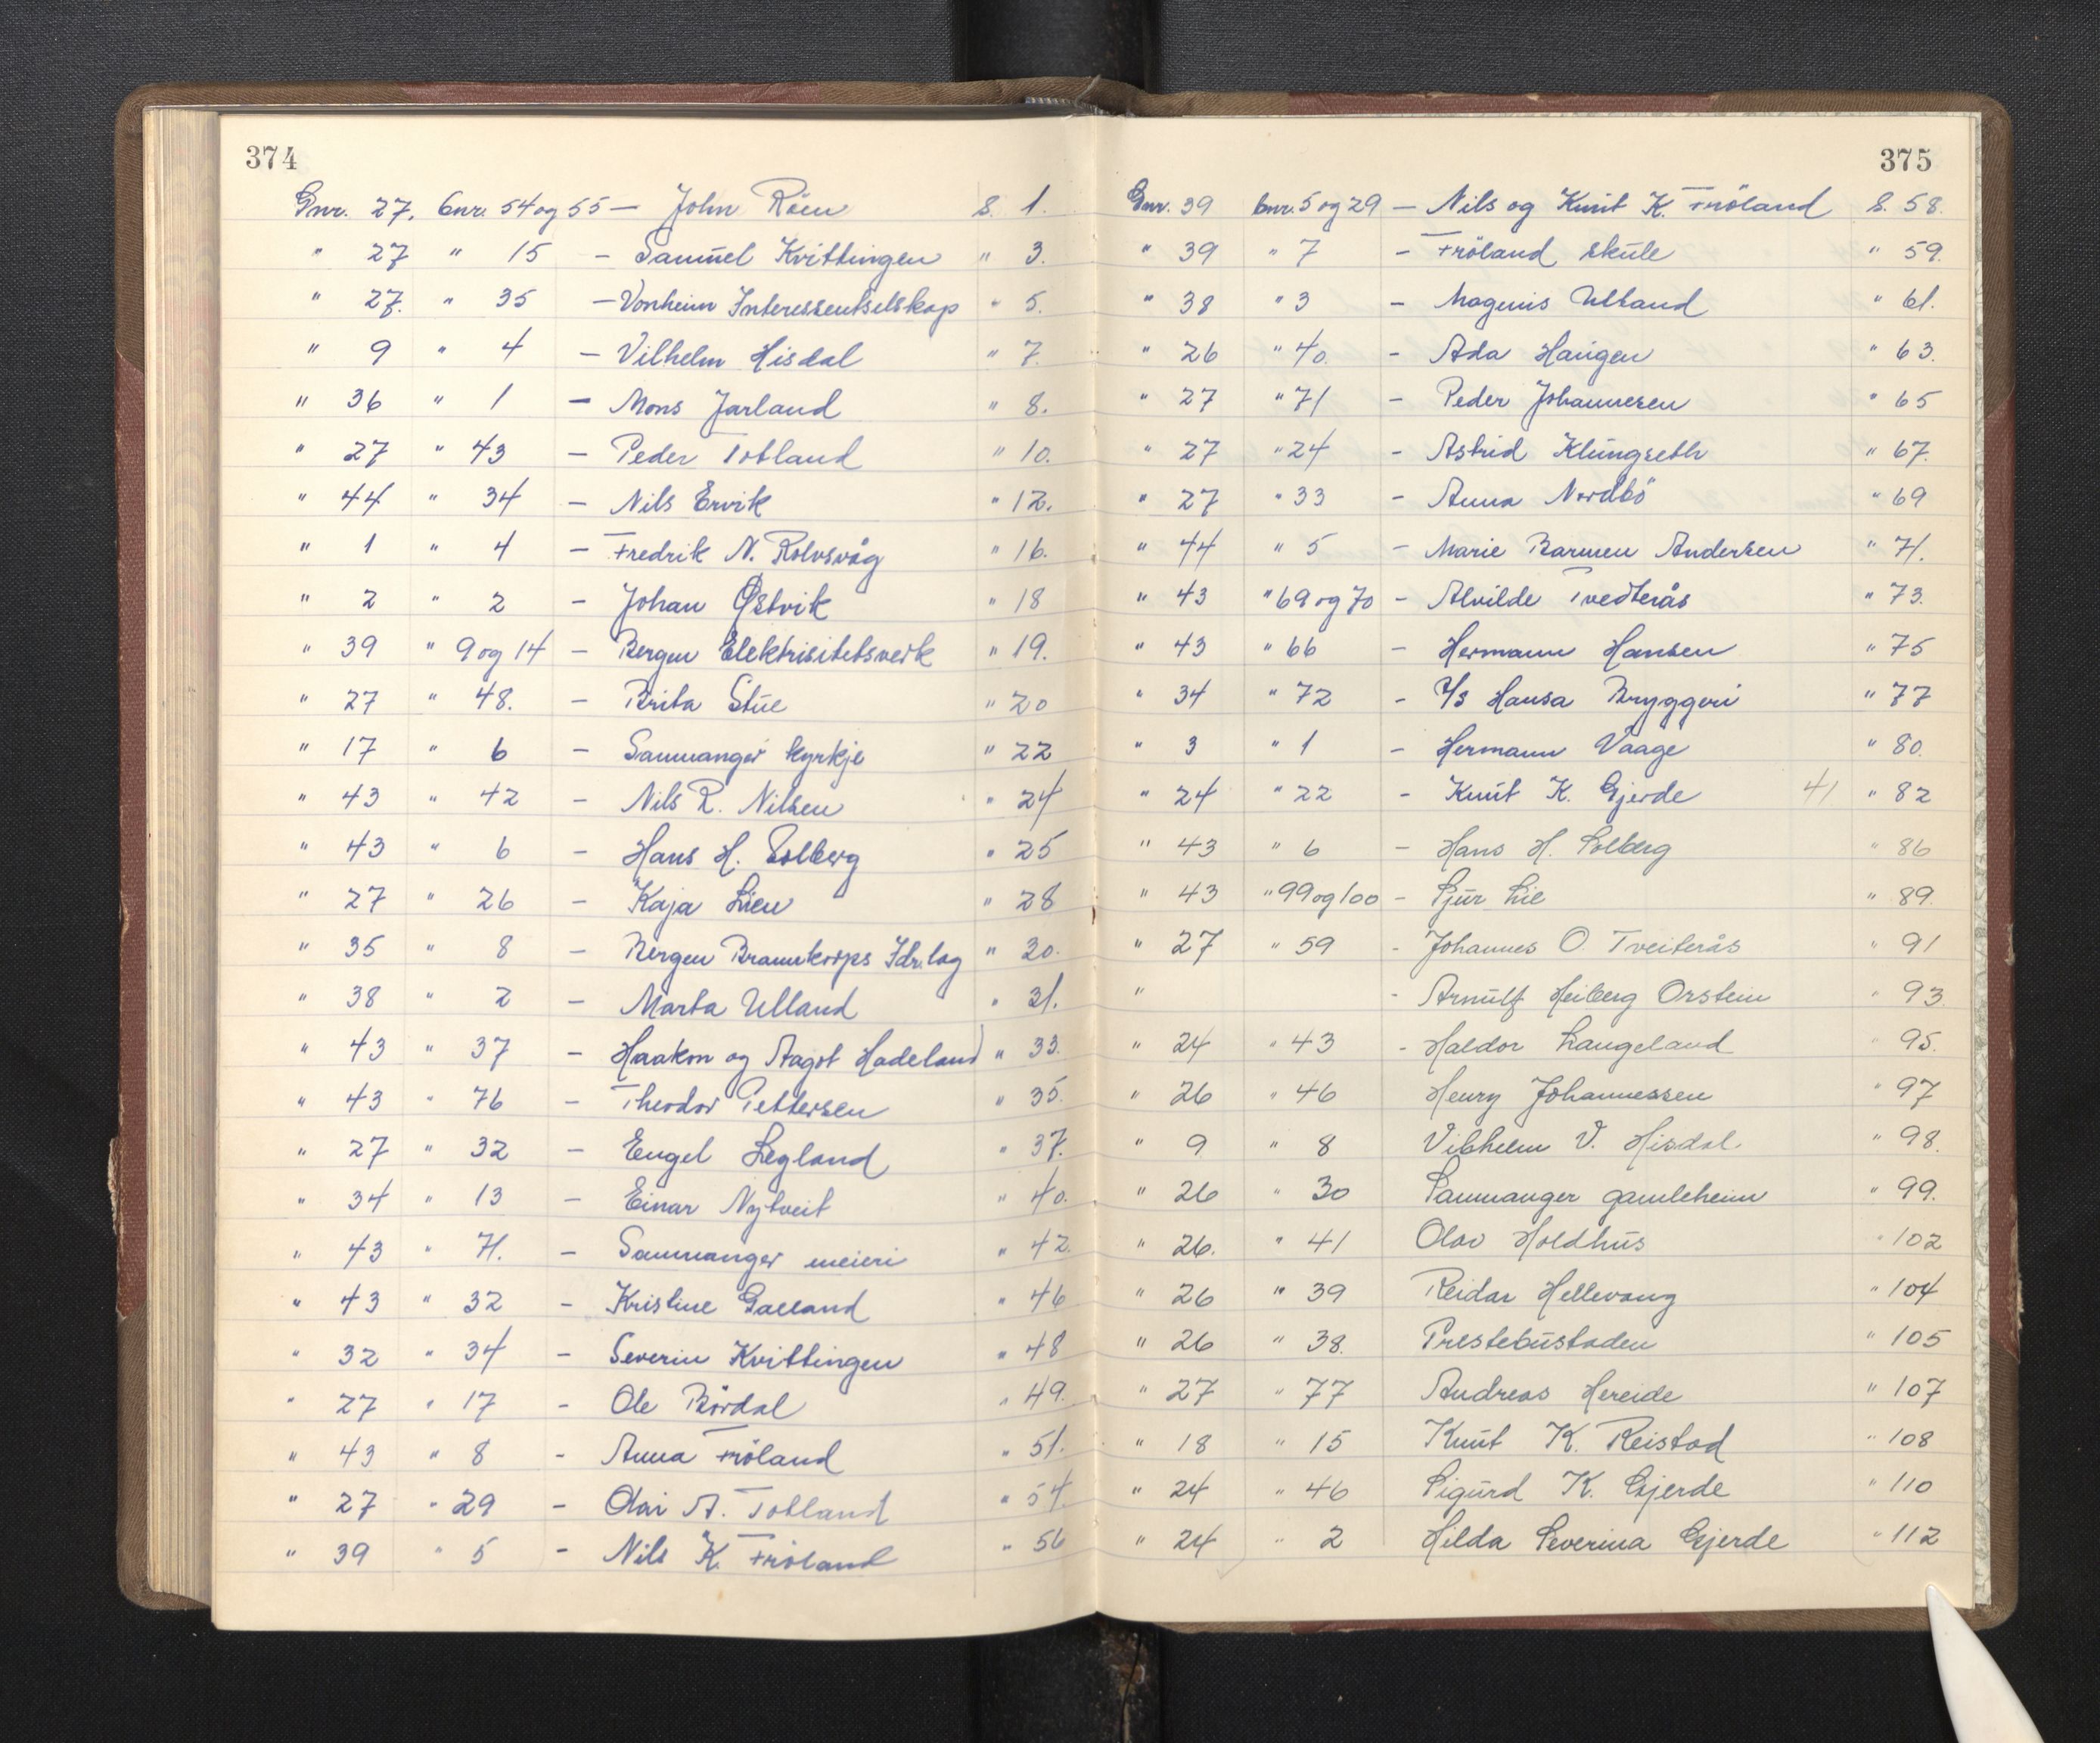 374
Gnr. 27, bnr. 54 og 55 — John Röen S. 1.
" 27 " 15 — Samuel Kvittingen " 3.
" 27. " 35 — Vonheim Interessentselskap " 5.
" 9 " 4 — Vilhelm Hisdal " 7.
" 36 " 1 — Mons Jarland " 8.
" 27 " 43 — Peder Totland " 10.
" 44 " 34 — Nils Ervik " 12.
" 1 " 4 — Fredrik N. Rolvsvåg " 16.
" 2 " 2 — Johan Østvik " 18
" 39 " 9 og 14 — Bergen Elektrisitetsverk " 19.
" 27 " 48. — Brita Stue " 20
" 17 " 6 — Samnanger kyrkje " 22
" 43 " 42 — Nils R. Nilsen " 24
" 43 " 6 — Hans H. Solberg " 25
" 27 " 26 — Kaja Lien " 28
" 35 " 8 — Bergen Brannkorps Idr.lag " 30.
" 38 " 2 — Marta Ulland " 31.
" 43 " 37 — Haakon og Aagot Hadeland " 33.
" 43 " 76 — Theodor Pettersen " 35.
" 27 " 32 — Engel Legland " 37.
" 34 " 13 — Einar Nytveit " 40.
" 43 " 71. — Samnanger meieri " 42.
" 43 " 32 — Kristine Galland " 46
" 32 " 34 — Severin Kvittingen " 48
" 27 " 17 — Ole Bördal " 49.
" 43 " 8 — Anna Fröland " 51.
" 27 " 29 — Olai A. Totland " 54.
" 39 " 5 — Nils K. Fröland " 56
375
Gnr. 39 bnr. 5 og 29 — Nils og Knut K. Fröland S. 58.
" 39 " 7 — Fröland skule " 59.
" 38 " 3 — Magnus Ulland " 61.
" 26 " 40. — Ada Haugen " 63.
" 27 " 71 — Peder Johannesen " 65
" 27 " 24 — Astrid Klungseth " 67.
" 27 " 33 — Anna Nordbö " 69
" 44 " 5 — Marie Barmen Andersen " 71.
" 43 " 69 og 70 — Alvilde Tvedterås " 73.
" 43 " 66 — Hermann Hansen " 75
" 34 " 72 — A/S Hansa Bryggeri " 77
" 3 " 1 — Hermann Vaage " 80.
" 24 " 22 — Knut K. Gjerde 41 " 82
" 43 " 6 — Hans H. Solberg " 86
" 43 " 99 og 100 — Sjur Lie " 89.
" 27 " 59 - Johannes O. Tveiterås " 91
" - Arnulf Heiberg Orstein " 93.
" 24 " 43 - Haldor Langeland " 95.
" 26 " 46 Henry Johannessen " 97
" 9 " 8 Vilhelm V. Hisdal " 98.
" 26 " 30 Samnanger gamleheim " 99.
" 26. " 41 Olav Holdhus " 102
" 26 " 39 Reidar Hellevang " 104
" 26 " 38. Prestebustaden " 105
" 27 " 77 Andreas Hereide " 107
" 18 " 15 Knut K. Reistad " 108
" 24 " 46 Sigurd K. Gjerde " 110
" 24 " 2 Hilda Severina Gjerde " 112